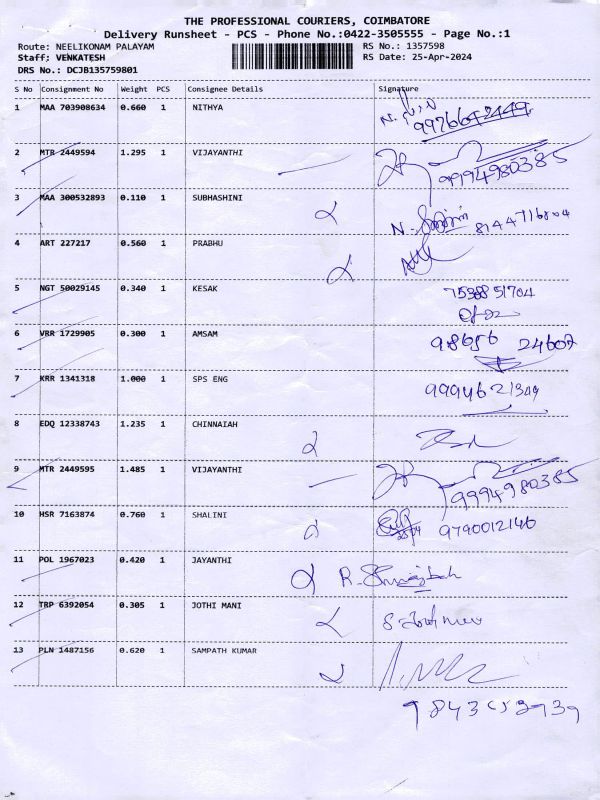 THE PROFESSIONAL COURIERS, COIMBATORE
Delivery Runsheet - PCS - Phone No.:0422-3505555 - Page No.:1
Route: NEELIKONAM PALAYAM RS No.: 1357598
Staff; VENKATESH RS Date: 25-Apr-2024
DRS No.: DCJB135759801
S No Consignment No Weight PCS Consignee Details Signature
1 MAA 703908634 0.660 1 NITHYA
2 MTR 2449594 1.295 1 VIJAYANTHI 9994980385
3 MAA 300532893 0.110 1 SUBHASHINI
4 ART 227217 0.560 1 PRABHU
5 NGT 50029145 0.340 1 KESAK
6 VRR 1729905 0.300 1 AMSAM 98656 24607
7 KRR 1341318 1.000 1 SPS ENG
8 EDQ 12338743 1.235 1 CHINNAIAH
9 MTR 2449595 1.485 1 VIJAYANTHI 9994980385
10 HSR 7163874 0.760 1 SHALINI 9790012146
11 POL 1967023 0.420 1 JAYANTHI
12 TRP 6392054 0.305 1 JOTHI MANI
13 PLN 1487156 0.620 1 SAMPATH KUMAR